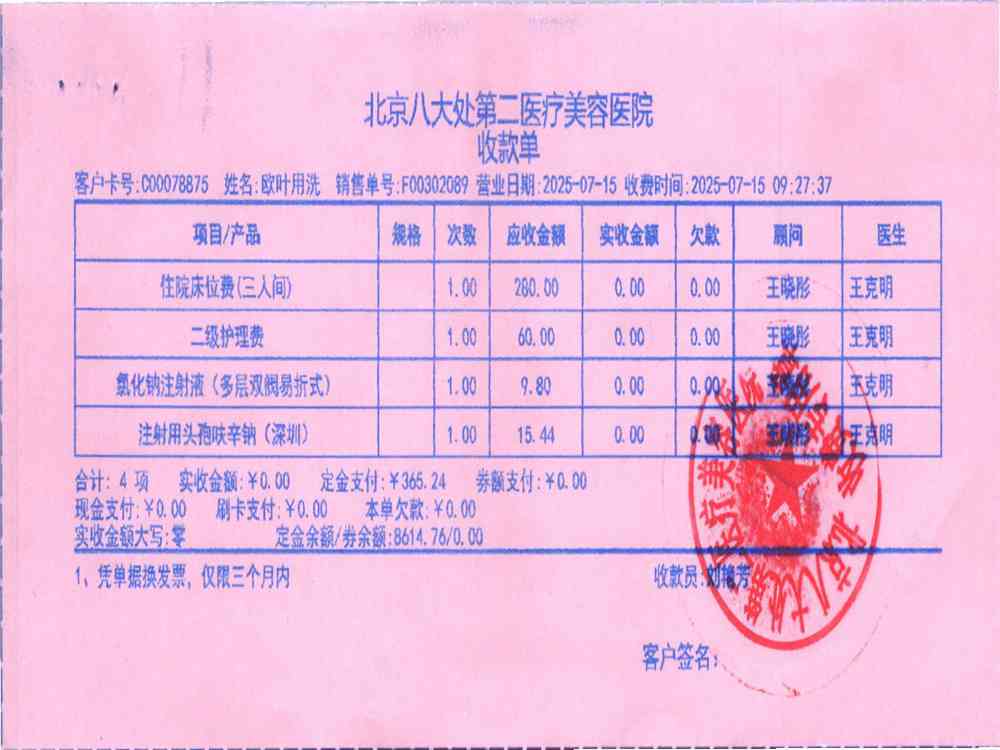 北京八大处第二医疗美容医院
收款单
客户卡号:C00078875 姓名:欧叶用洗 销售单号:F00302089 营业日期:2025-07-15 收费时间:2025-07-15 09:27:37
项目/产品 规格 次数 应收金额 实收金额 欠款 顾问 医生
住院床位费(三人间) 1.00 280.00 0.00 0.00 王晓彤 王克明
二级护理费 1.00 60.00 0.00 0.00 王晓彤 王克明
氯化钠注射液（多层双阀易折式） 1.00 9.80 0.00 0.00 王晓彤 王克明
注射用头孢呋辛钠（深圳） 1.00 15.44 0.00 0.00 王晓彤 王克明
合计: 4 项 实收金额:¥0.00 定金支付:¥365.24 券额支付:¥0.00
现金支付:¥0.00 刷卡支付:¥0.00 本单欠款:¥0.00
实收金额大写:零 定金余额/券余额:8614.76/0.00
1、凭单据换发票，仅限三个月内 收款员:刘艳芳
客户签名:
北京八大处